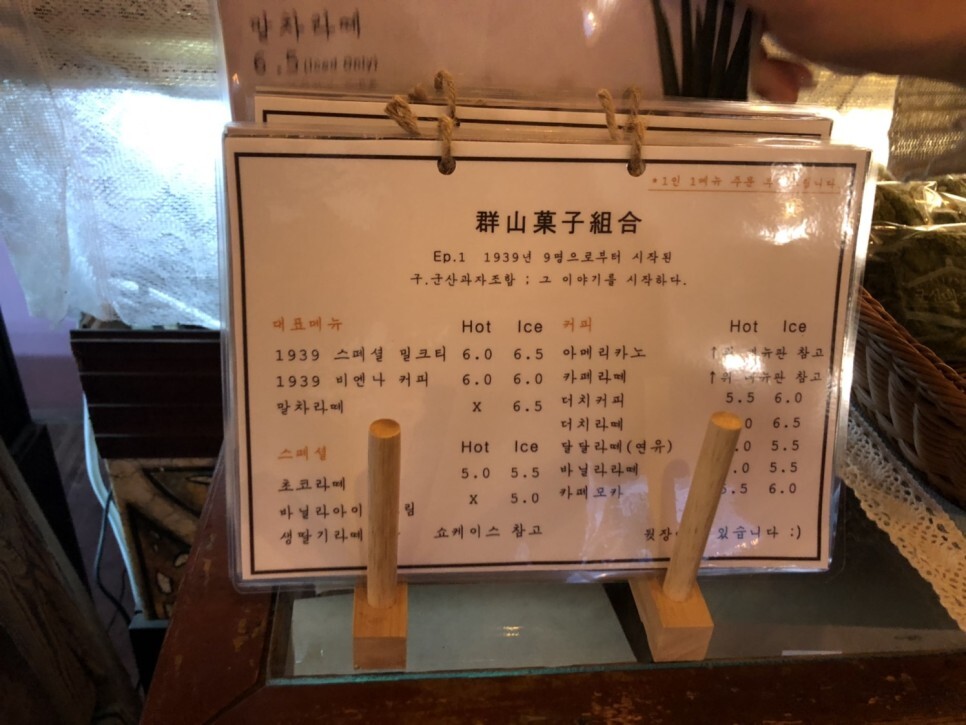 말차라떼
6.5 (Iced Only)
*1인 1메뉴 주문
群山菓子組合
Ep.1 1939년 9명으로부터 시작된
구.군산과자조합 ; 그 이야기를 시작하다.
대표메뉴 Hot Ice
1939 스페셜 밀크티 6.0 6.5
1939 비엔나 커피 6.0 6.0
말차라떼 X 6.5
스페셜 Hot Ice
초코라떼 5.0 5.5
바닐라아이 림 X 5.0
생딸기라떼 쇼케이스 참고
커피 Hot Ice
아메리카노 ↑위 메뉴판 참고
카페라떼 ↑위 메뉴판 참고
더치커피 5.5 6.0
더치라떼 .0 6.5
달달라떼(연유) .0 5.5
바닐라라떼 .0 5.5
카페모카 5.5 6.0
뒷장 있습니다 :)